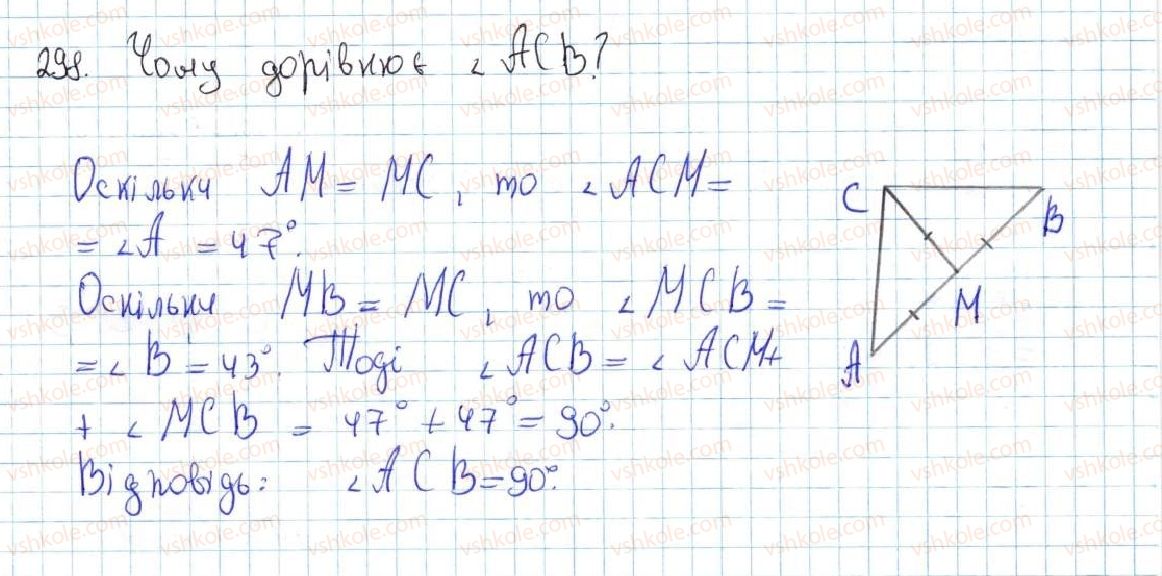 298. Чому дорівнює ∠ ACB?
Оскільки AM = MC, то ∠ ACM =
= ∠A = 47°.
Оскільки MB = MC, то ∠ MCB =
= ∠ B = 43°. Тоді ∠ ACB = ∠ ACM +
+ ∠ MCB = 47° + 47° = 90°.
Відповідь: ∠ A C B = 90°.
C
B
M
A
vshkole.com